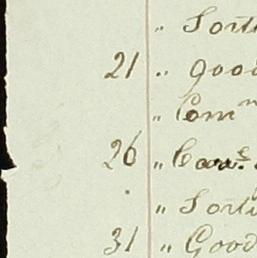 " Sorti
21 " Good
" Comn
26 "
" Sorti
31 " Good